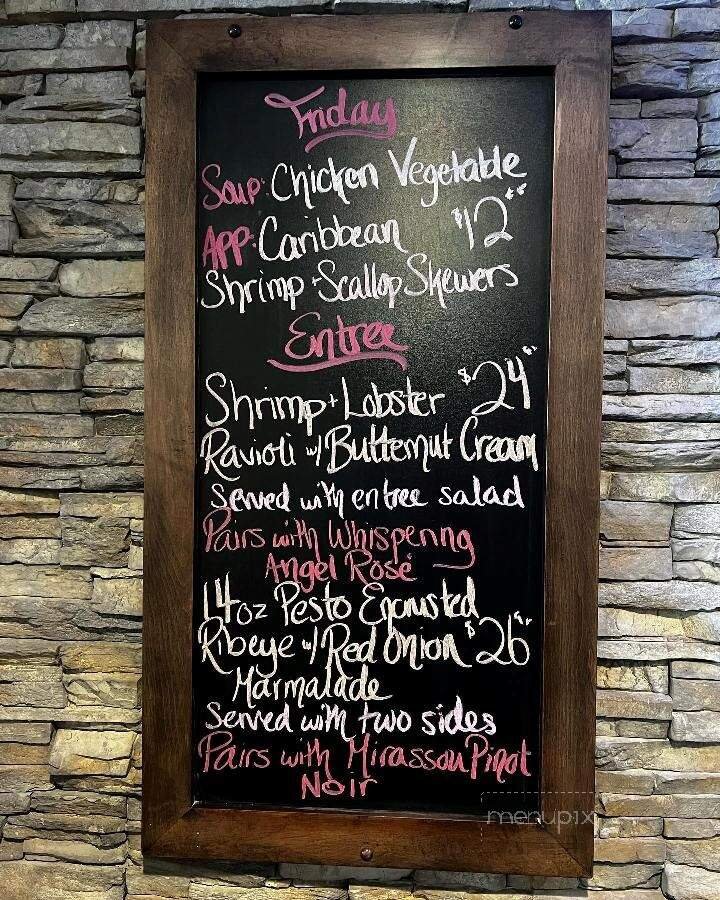 Friday
Soup: Chicken Vegetable
App: Caribbean $12
Shrimp + Scallop Skewers
Entree
Shrimp + Lobster $24
Ravioli w/ Butternut Cream
Served with entree salad
Pairs with Whispering
Angel Rosé
14oz Pesto Encrusted
Ribeye w/ Red Onion $26
Marmalade
Served with two sides
Pairs with Mirassou Pinot
Noir
menupix